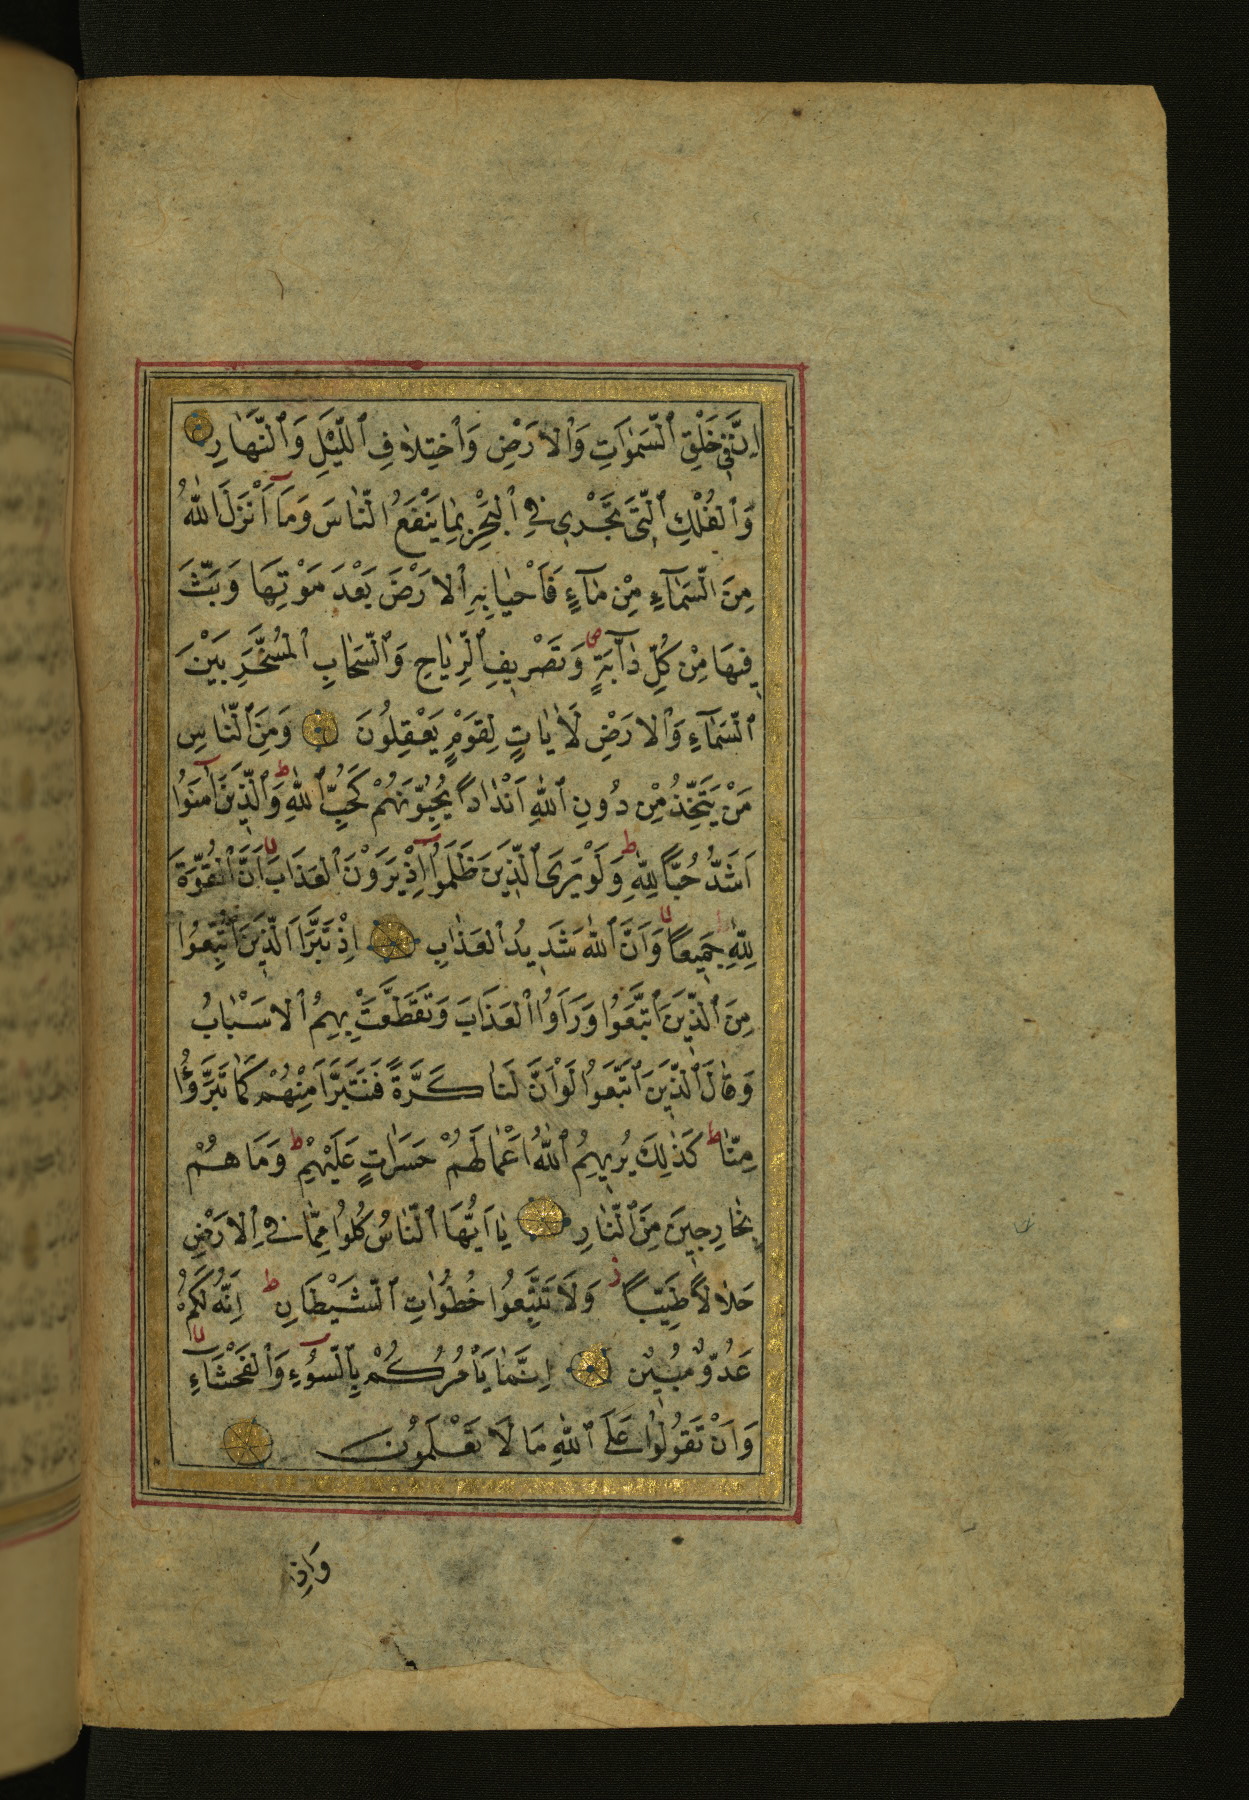 اِنَّ فِي خَلْقِ ٱلسَّمٰوَاتِ وَٱلْاَرْضِ وَٱخْتِلَافِ ٱللَّيْلِ وَٱلنَّهَارِ
وَٱلْفُلْكِ ٱلَّتِي تَجْرِي فِي ٱلْبَحْرِ بِمَا يَنْفَعُ ٱلنَّاسَ وَمَآ اَنْزَلَ ٱللّٰهُ
مِنَ ٱلسَّمَآءِ مِنْ مَآءٍ فَاَحْيَا بِهِ ٱلْاَرْضَ بَعْدَ مَوْتِهَا وَبَثَّ
فِيهَا مِنْ كُلِّ دَآبَّةٍ ص وَتَصْرِيفِ ٱلرِّيَاحِ وَٱلسَّحَابِ ٱلْمُسَخَّرِ بَيْنَ
ٱلسَّمَآءِ وَٱلْاَرْضِ لَاٰيَاتٍ لِقَوْمٍ يَعْقِلُونَ وَمِنَ ٱلنَّاسِ
مَنْ يَتَّخِذُ مِنْ دُونِ ٱللّٰهِ اَنْدَادًا يُحِبُّونَهُمْ كَحُبِّ ٱللّٰهِ ط وَٱلَّذِينَ آمَنُوا
اَشَدُّ حُبًّا لِلّٰهِ ط وَلَوْ يَرَى ٱلَّذِينَ ظَلَمُوٓا اِذْ يَرَوْنَ ٱلْعَذَابَ لا اَنَّ ٱلْقُوَّةَ
لِلّٰهِ جَمِيعًا لا وَاَنَّ ٱللّٰهَ شَدِيدُ ٱلْعَذَابِ اِذْ تَبَرَّاَ ٱلَّذِينَ ٱتُّبِعُوا
مِنَ ٱلَّذِينَ ٱتَّبَعُوا وَرَاَوُا ٱلْعَذَابَ وَتَقَطَّعَتْ بِهِمُ ٱلْاَسْبَابُ
وَقَالَ ٱلَّذِينَ ٱتَّبَعُوا لَوْ اَنَّ لَنَا كَرَّةً فَنَتَبَرَّاَ مِنْهُمْ كَمَا تَبَرَّؤُا
مِنَّا ط كَذٰلِكَ يُرِيهِمُ ٱللّٰهُ اَعْمَالَهُمْ حَسَرَاتٍ عَلَيْهِمْ ط وَمَا هُمْ
بِخَارِجِينَ مِنَ ٱلنَّارِ يَا اَيُّهَا ٱلنَّاسُ كُلُوا مِمَّا فِي ٱلْاَرْضِ
حَلَالًا طَيِّبًا ز وَلَا تَتَّبِعُوا خُطُوَاتِ ٱلشَّيْطَانِ ط اِنَّهُ لَكُمْ
عَدُوٌّ مُبِينٌ اِنَّمَا يَأْمُرُكُمْ بِٱلسُّوٓءِ وَٱلْفَحْشَآءِ لا
وَاَنْ تَقُولُوا عَلَى ٱللّٰهِ مَا لَا تَعْلَمُونَ
وَاِذَا